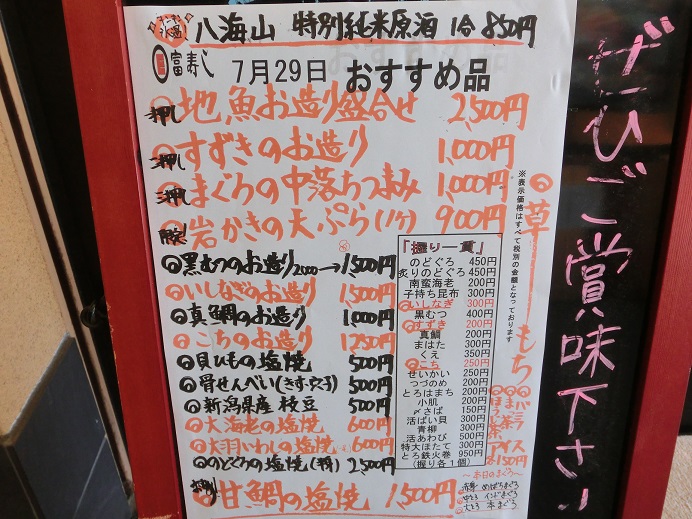 八海山 特別純米原酒 1合 850円
富寿し 7月29日 おすすめ品
一押し 地魚お造り盛合せ 2,500円
二押し すずきのお造り 1,000円
三押し まぐろの中落ちつまみ 1,000円
岩かきの天ぷら(1ケ) 900円
黒むつのお造り 2000→1,500円
いしなぎのお造り 1500円
真鯛のお造り 1,000円
こちのお造り 1250円
貝ひもの塩焼 500円
骨せんべい(きす・穴子) 500円
新潟県産 枝豆 500円
大海老の塩焼 600円
大羽いわしの塩焼 600円
のどぐろの塩焼(半身) 2,500円
甘鯛の塩焼 1,500円
「握り一貫」
のどぐろ 450円
炙りのどぐろ 450円
南蛮海老 200円
子持ち昆布 300円
いしなぎ 300円
黒むつ 400円
すずき 200円
真鯛 200円
まはた 300円
くえ 350円
こち 250円
せいかい 250円
つづめ 200円
とろはまち 200円
小肌 200円
〆さば 150円
活ばい貝 300円
青柳 300円
活あわび 500円
特大ほたて 300円
とろ鉄火巻 950円
(握り各1個)
※表示価格はすべて税別の金額となっております
草もち
バニラアイス
まっ茶
ほうじ茶
各150円
~本日のまぐろ~
赤身 めばちまぐろ
中とろ いんどまぐろ
大とろ 本まぐろ
ぜひご賞味下さい